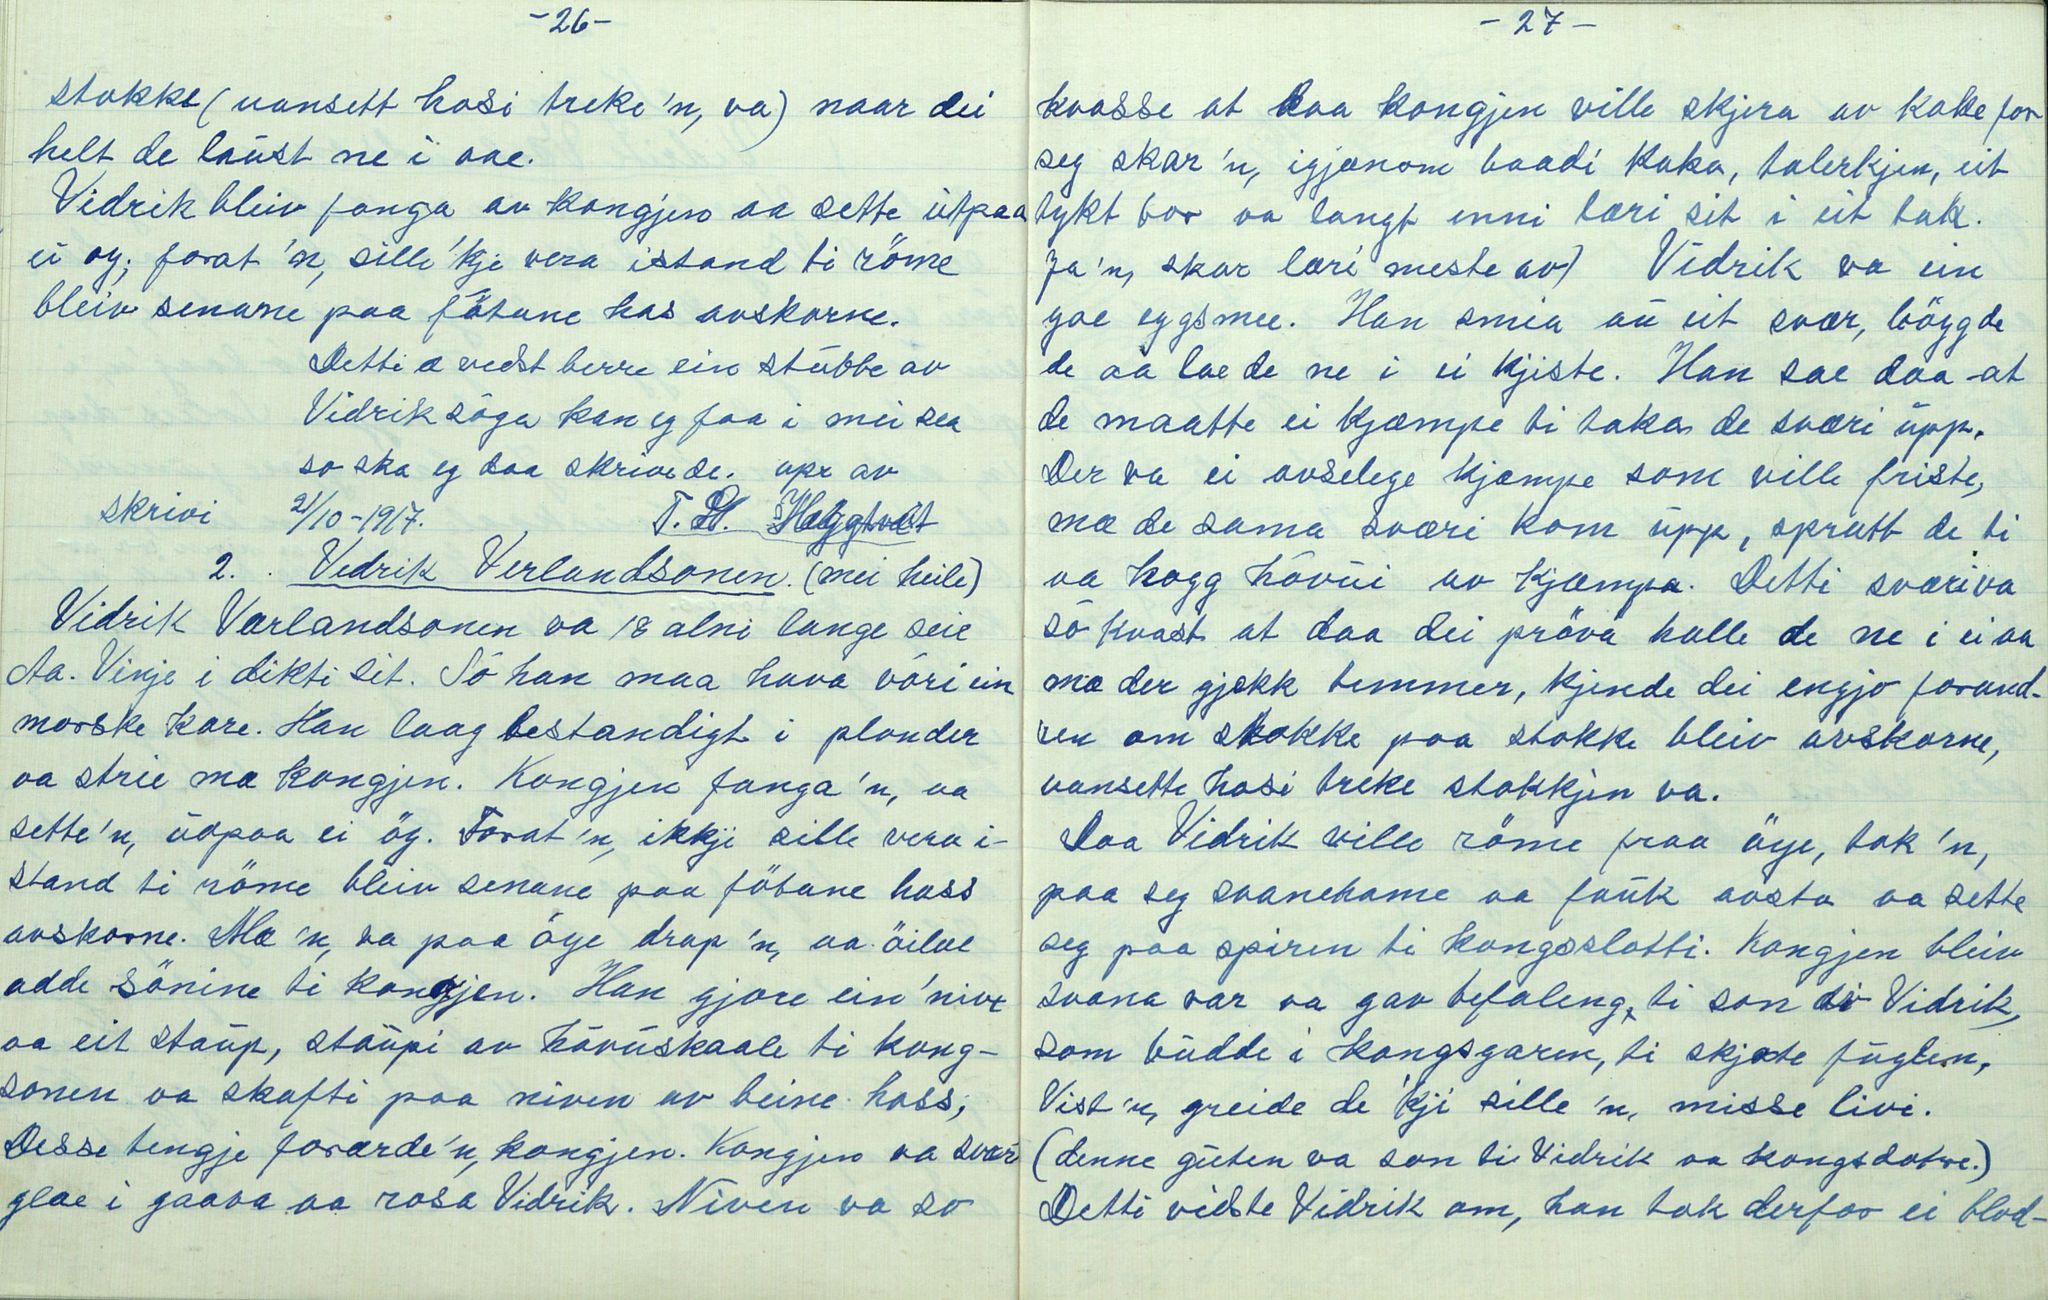 -26-
stokke (uansett hosi treke 'n, va) naar dei
helt de laust ne i aae.
Vidrik bleiv fanga av kongjen aa sette utpaa
ei øy; forat 'n, sille 'kje vera istand ti röme
bleiv senane paa fötane has avskorne.
Detti æ vedst berre ein stubbe av
Vidriksöga kan eg faa i mei sea
so ska eg daa skrive de. opr av
skrivi 21/10-1917. T. H. Høgtvedt
2. Vidrik Verlandsonen. (mei heile)
Vidrik Værlandsonen va 18 alni lange seie
Aa. Vinje i dikti sit. Só han maa hava vóri ein
morske kare. Han laag bestandigt i plunder
aa strie mæ kongjen. Kongjen fanga 'n, aa
sette 'n, udpaa ei öy. Forat 'n, ikkji sille vera i-
stand ti röme bleiv senane paa fötane hass
avskorne. Mæ 'n, va paa öye drap 'n, aa öilae
adde sönine ti kongjen. Han gjore ein 'niv
aa eit staup, staupi av hóvuskaale ti kong-
sonen aa skafti paa niven av beine hass;
Desse tengje forærde 'n, kongjen. Kongjen va svær
glae i gaava aa rosa Vidrik. Niven va so
-27-
kvasse at daa kongjen ville skjera av kake for
seg skar 'n, igjænom baadi kaka, talerkjen, eit
tykt bor aa langt inni læri sit i eit tak.
Ja 'n, skar læri meste av) Vidrik va ein
goe eggsmee. Han smia au eit svær, böygde
de aa lae de ne i ei kjiste. Han sae daa at
de maatte ei kjæmpe ti taka de sværi upp.
Der va ei avselege kjæmpe som ville friste,
mæ de sama sværi kom upp, spratt de ti
aa hogg hóvui av kjæmpa. Detti sværi va
só kvast at daa dei pröva halle de ne i ei aa
mæ der gjekk temmer, kjende dei engjo forand-
ren om stokke paa stokke bleiv avskorne,
uansette hosi treke stokkjen va.
Daa Vidrik ville röme fraa öye, tok 'n,
paa seg svanehame aa fauk avsta aa sette
seg paa spiren ti kongsslotti. Kongjen bleiv
svana var aa gav befaleng, ti son ti Vidrik,
som budde i kongsgaren, ti skjote fuglen,
Vist 'n, greide de 'kji sille 'n, misse livi.
(denne guten va son ti Vidrik aa kongsdotre.)
Detti viste Vidrik om, han tok derfor ei blod-